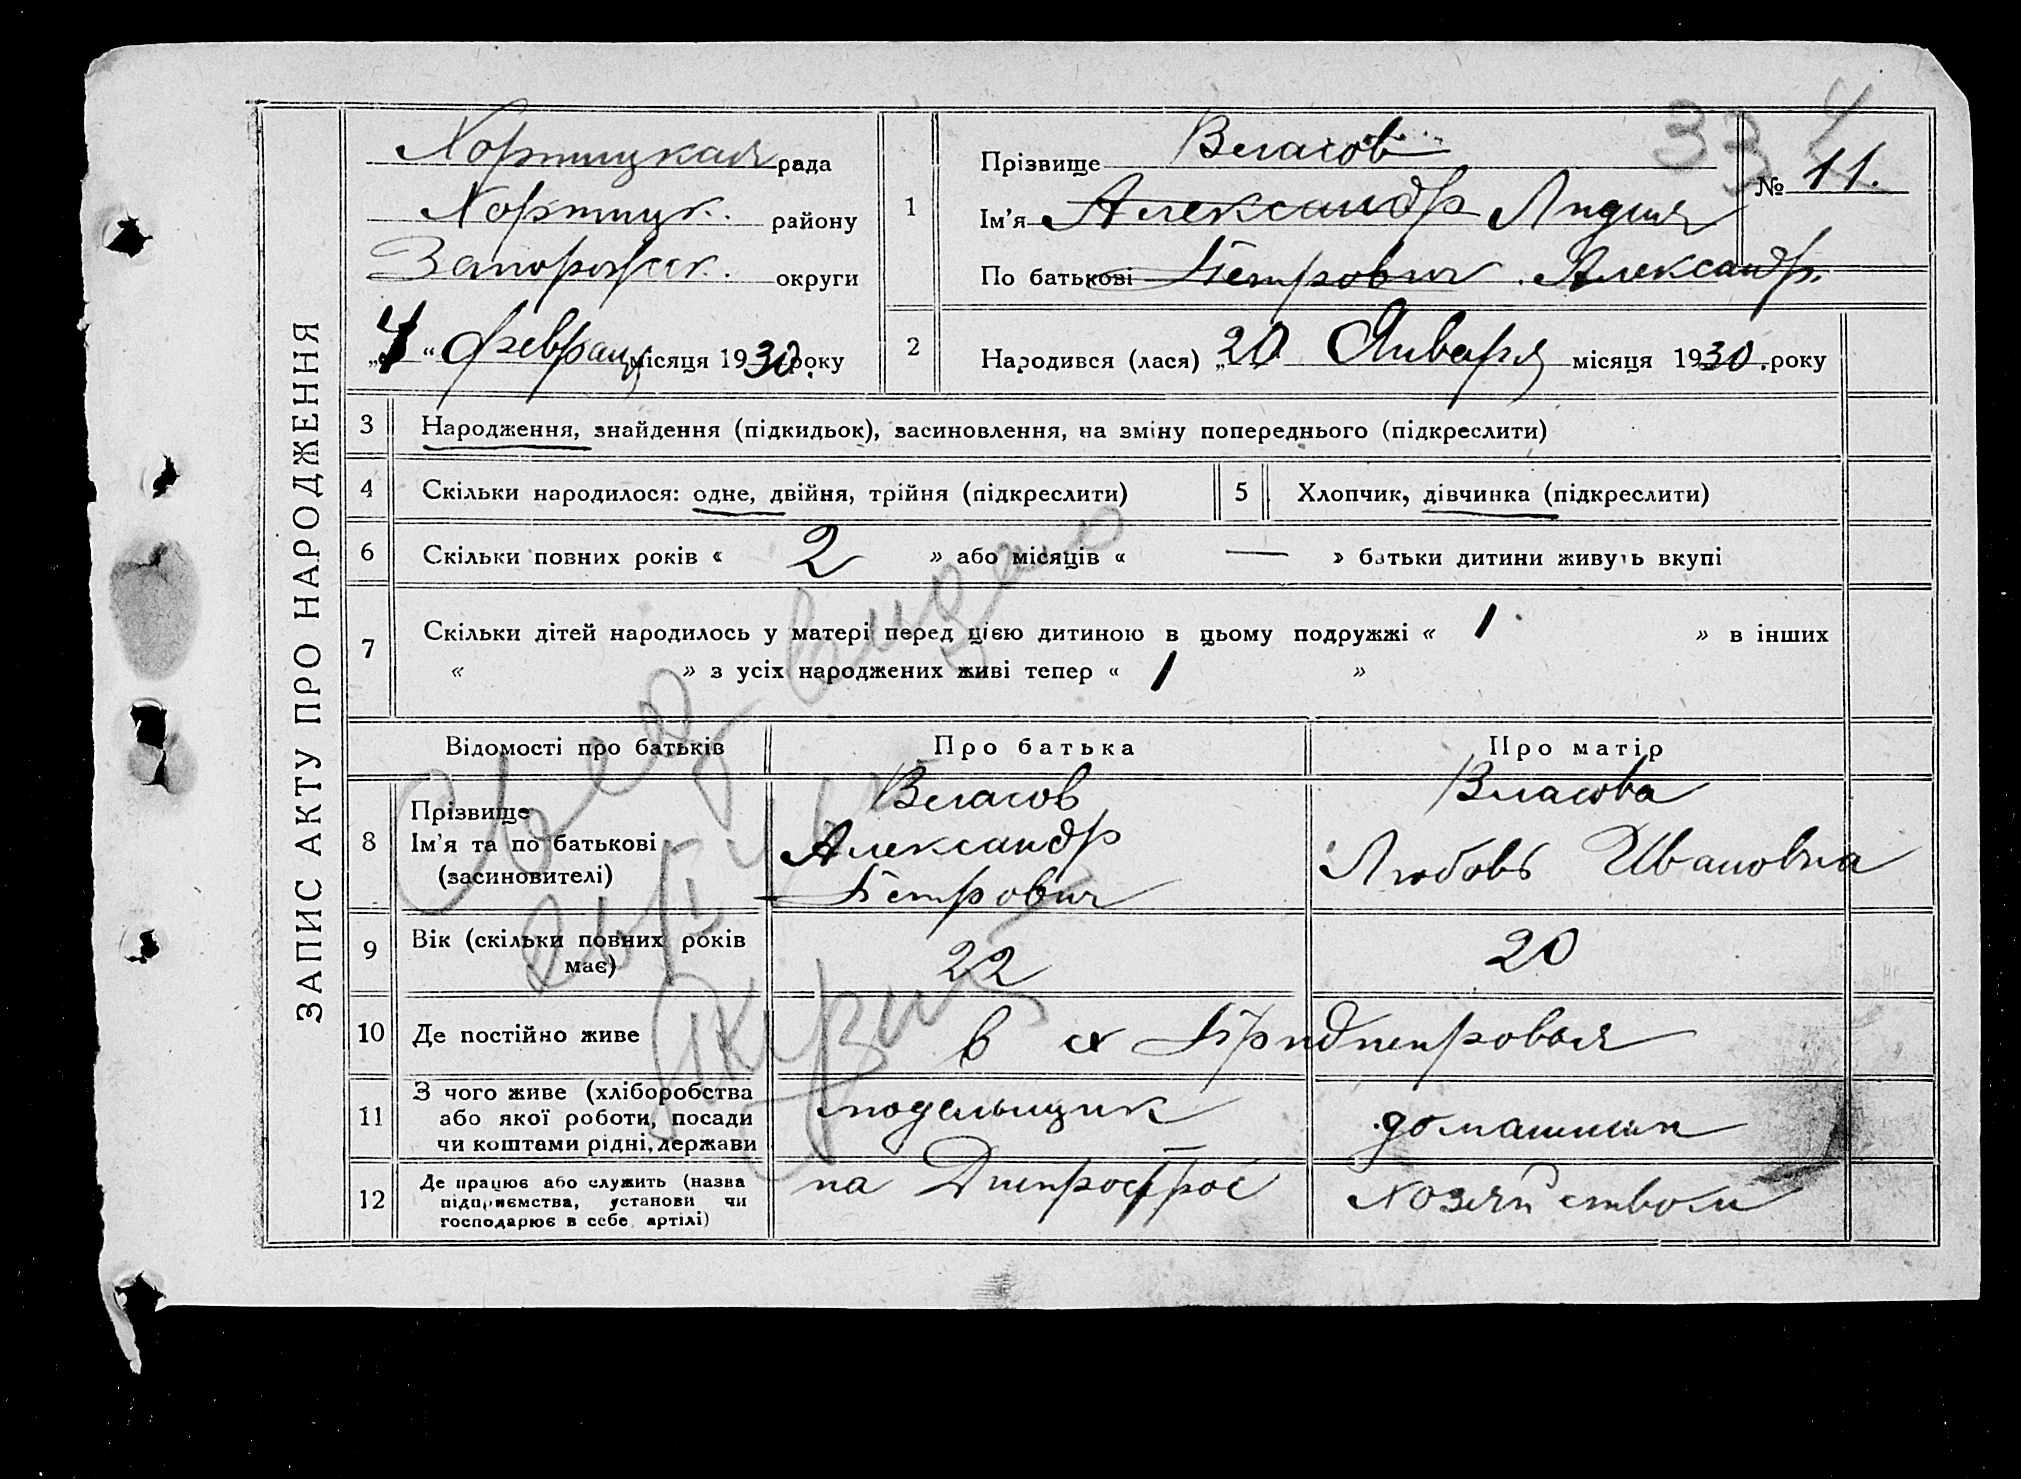 ЗАПИС АКТУ ПРО НАРОДЖЕННЯ
Хортицкая рада
Хортицк. району
Запорожск. округи
„4“ февраля місяця 1930. року
33 4
№ 11.
1 Прізвище Власов
Ім'я Александр Лидия
По батькові Петрович Александр.
2 Народився (лася) „20 Января місяця 1930. року
3 Народження, знайдення (підкидьок), засиновлення, на зміну попереднього (підкреслити)
4 Скільки народилося: одне, двійня, трійня (підкреслити) 5 Хлопчик, дівчинка (підкреслити)
6 Скільки повних років « 2 » або місяців « — » батьки дитини живуть вкупі
7 Скільки дітей народилось у матері перед цією дитиною в цьому подружжі « 1 » в інших
« » з усіх народжених живі тепер « 1 »
Відомості про батьків Про батька Про матір
8 Прізвище
Ім'я та по батькові
(засиновителі)
Власов
Александр
Петрович
Власова
Любовь Ивановна
9 Вік (скільки повних років
має)
22 20
10 Де постійно живе в Приднепровья
11 З чого живе (хліборобства
або якої роботи, посади
чи коштами рідні, держави
модельщик домашним
12 Де працює або служить (назва
підприємства, установи чи
господарює в себе артілі)
на Днепрострое Хозяйством